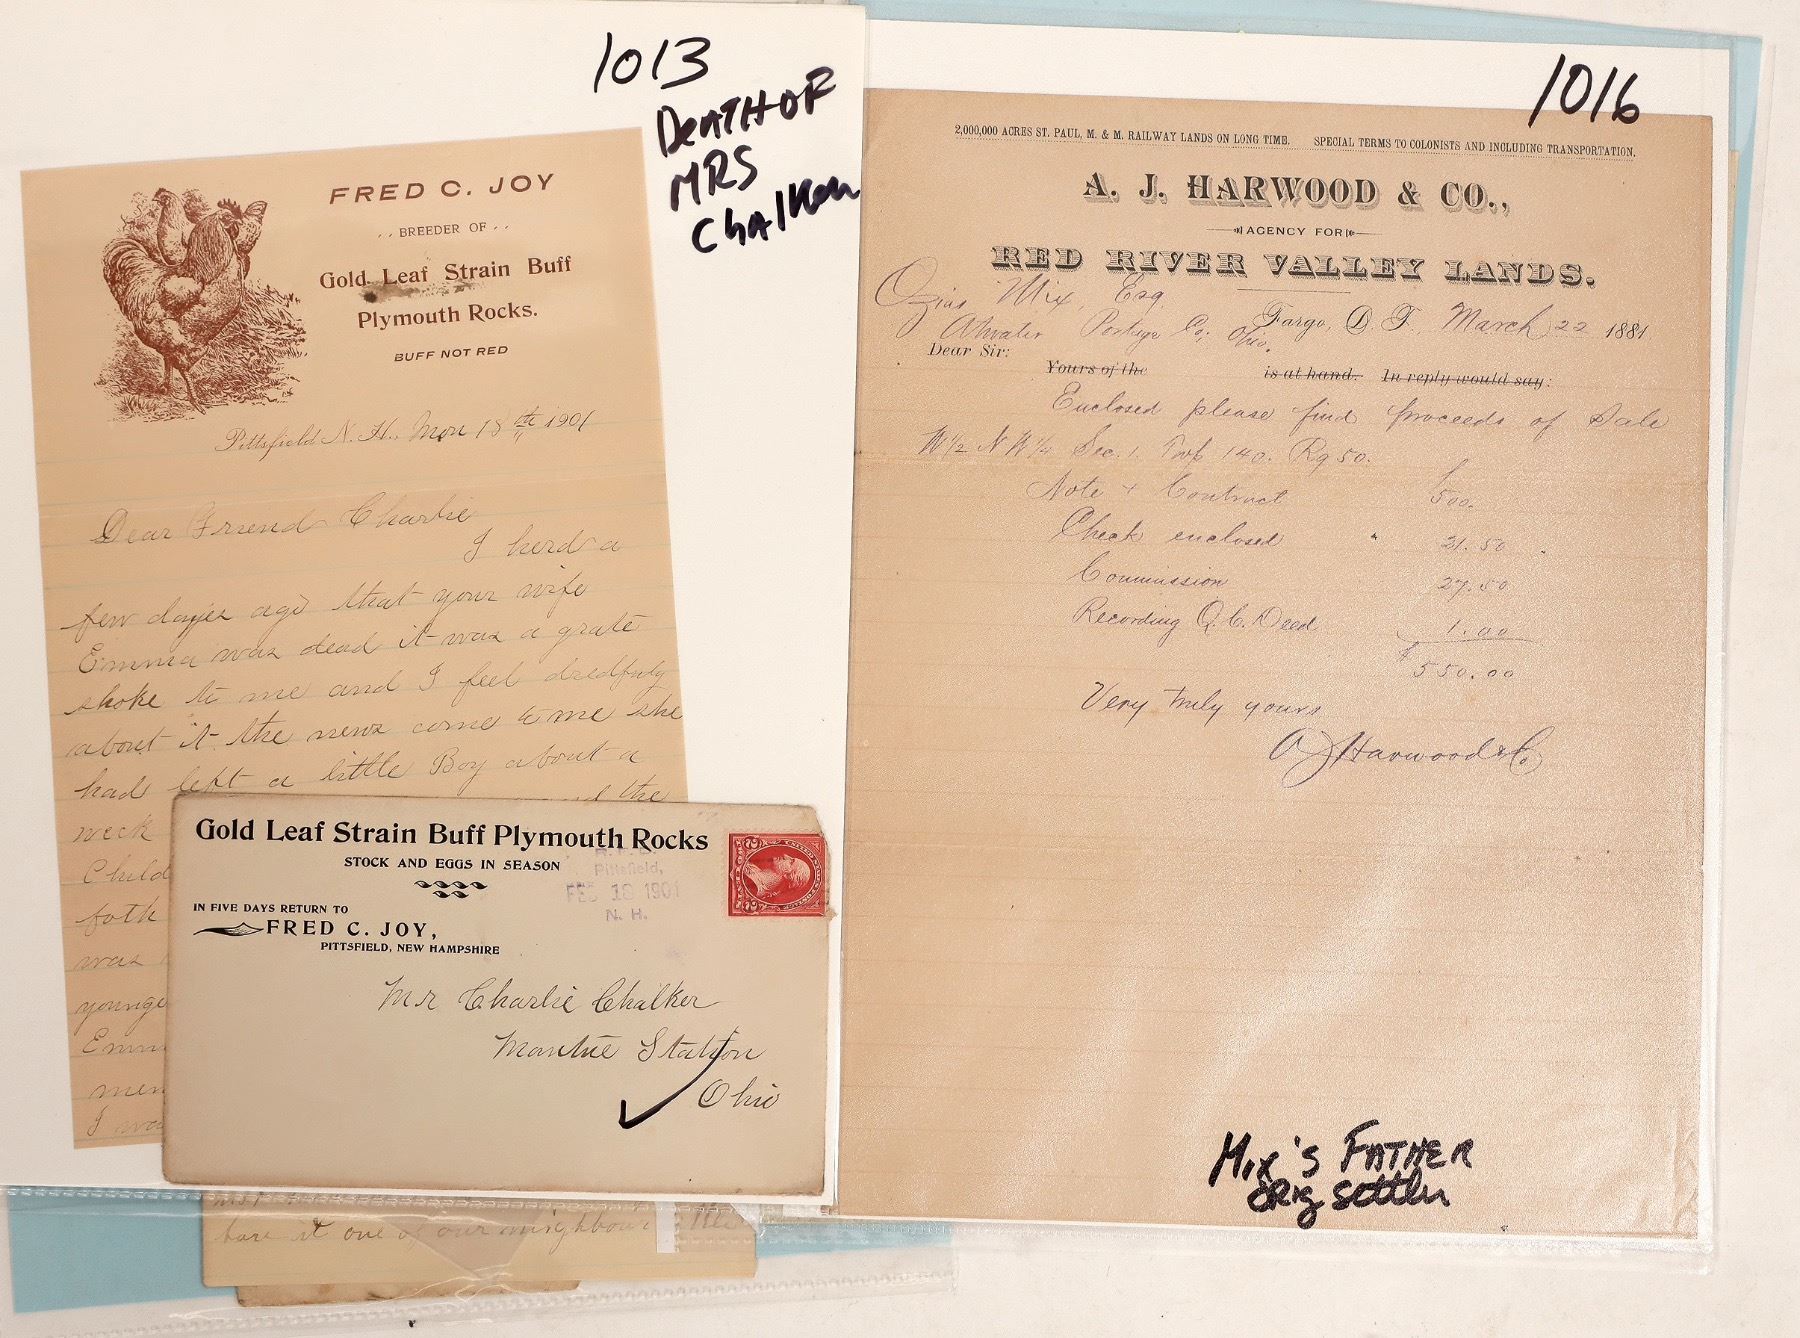 1013
DEATH OF
MRS
Chalker
FRED C. JOY
. . BREEDER OF . .
Gold Leaf Strain Buff
Plymouth Rocks.
BUFF NOT RED
Pittsfield N. H., Mon 18th 1901
Dear Friend Charlie
I herd a
few dayes ago that your wife
Emma was dead it was a grate
shoke to me and I feel dredfuly
about it the news come to me she
had left a little Boy about a
week
the
Child
foth
was
younge
Emm
men
I wa
Gold Leaf Strain Buff Plymouth Rocks
STOCK AND EGGS IN SEASON
IN FIVE DAYS RETURN TO
FRED C. JOY,
PITTSFIELD, NEW HAMPSHIRE
Pittsfield,
FEB 18 1901
N. H.
Mr Charlie Chalker
Mantue Station
Ohio
have it one of our neighbour
1016
2,000,000 ACRES ST. PAUL, M. & M. RAILWAY LANDS ON LONG TIME. SPECIAL TERMS TO COLONISTS AND INCLUDING TRANSPORTATION.
A. J. HARWOOD & CO.,
AGENCY FOR
RED RIVER VALLEY LANDS.
Ozias Mix, Esq
Fargo, D. T., March 22 1881
Atwater Portage Co; Ohio.
Dear Sir:
Yours of the is at hand. In reply would say:
Enclosed please find proceeds of Sale
W 1/2 N W 1/4 Sec. 1. Twp 140. Rg 50.
Note + Contract $500.
Check enclosed " 21.50
Commission 27.50
Recording Q. C. Deed 1.00
$550.00
Very truly yours
A J Harwood & Co
Mix's FATHER
ORig Settler